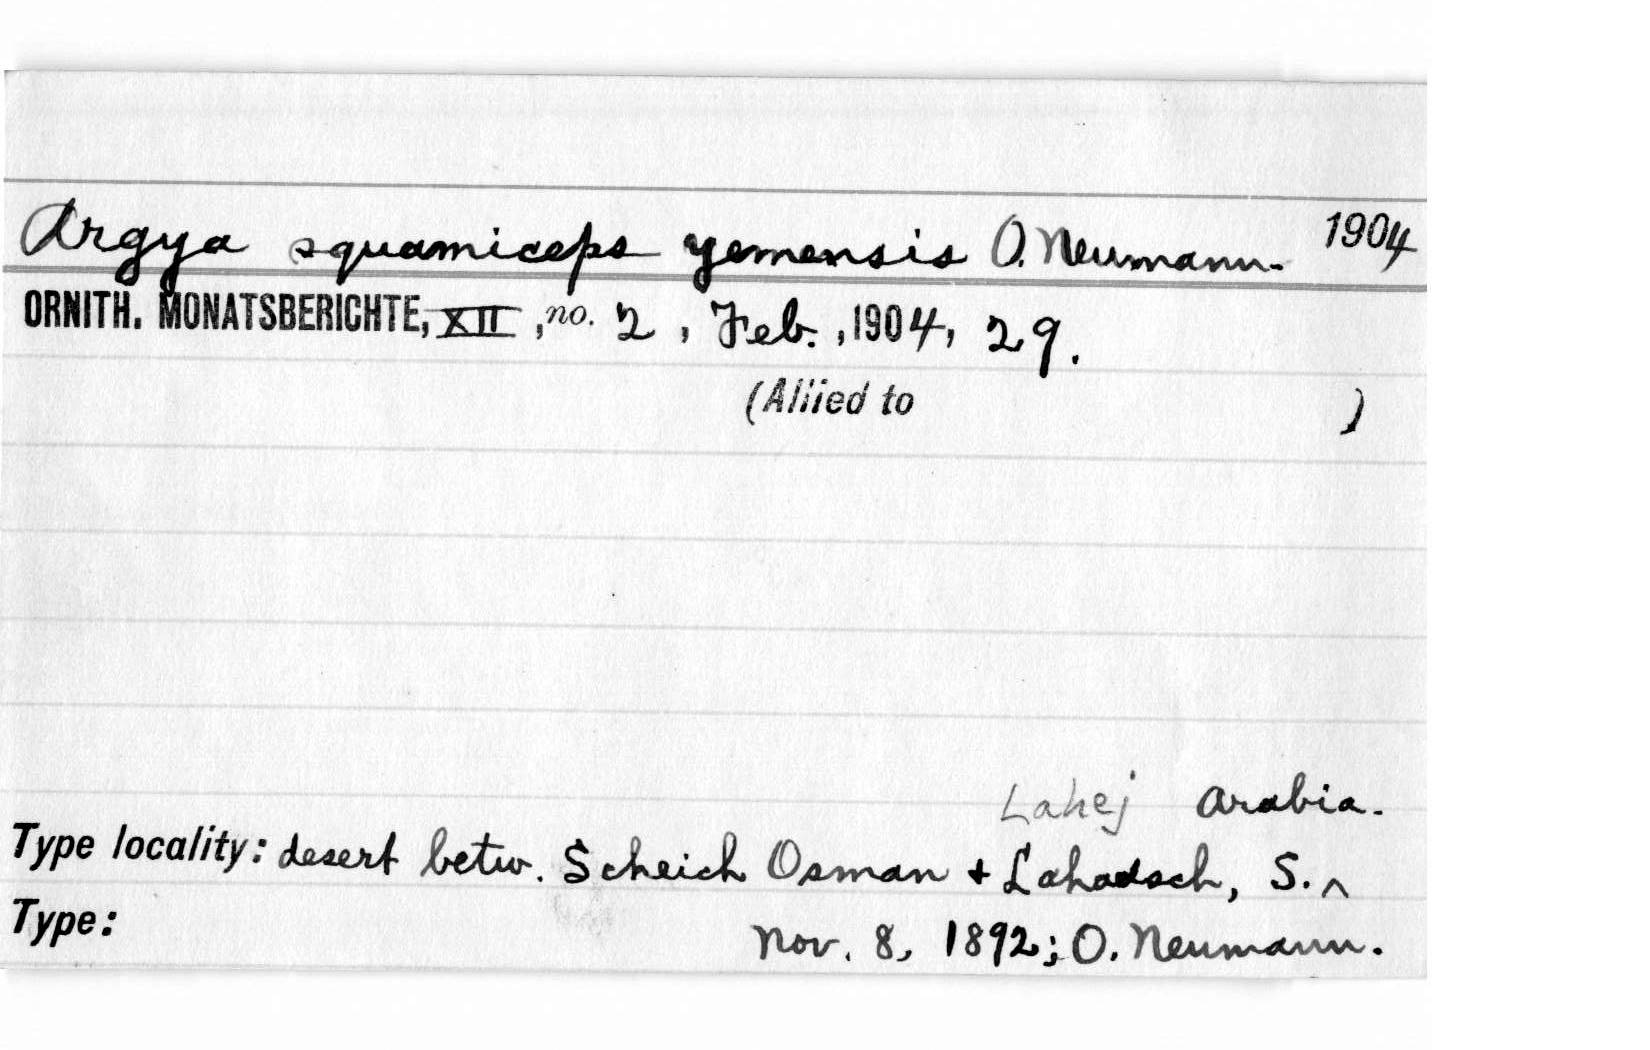 Argya squamiceps yemensis O. Neumann. 1904
ORNITH. MONATSBERICHTE, XII, no. 2, Feb., 1904, 29.
(Allied to )
Lahej Arabia.
Type locality: desert betw. Scheich Osman + Lahadsch, S. ^
Type: Nov. 8, 1892; O. Neumann.